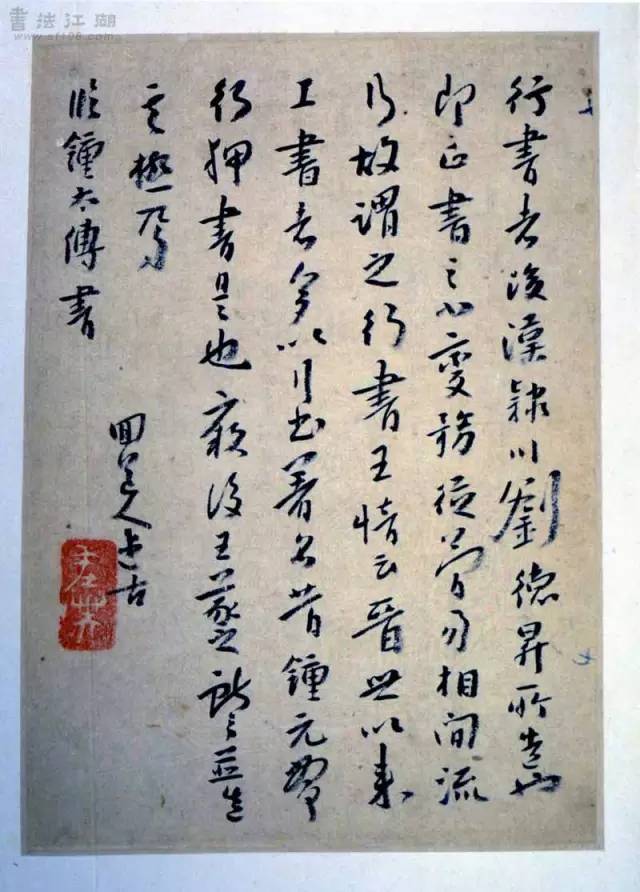 書法江湖
www.sf108.com
行書者後漢潁川劉德昇所造
即正書之小變務從簡易相間流
行故謂之行書王愔云晉世以來
工書者多以行書著名昔鍾元常
行押書是也爾後王羲獻並造
其極焉
臨鍾太傅書
八大山人